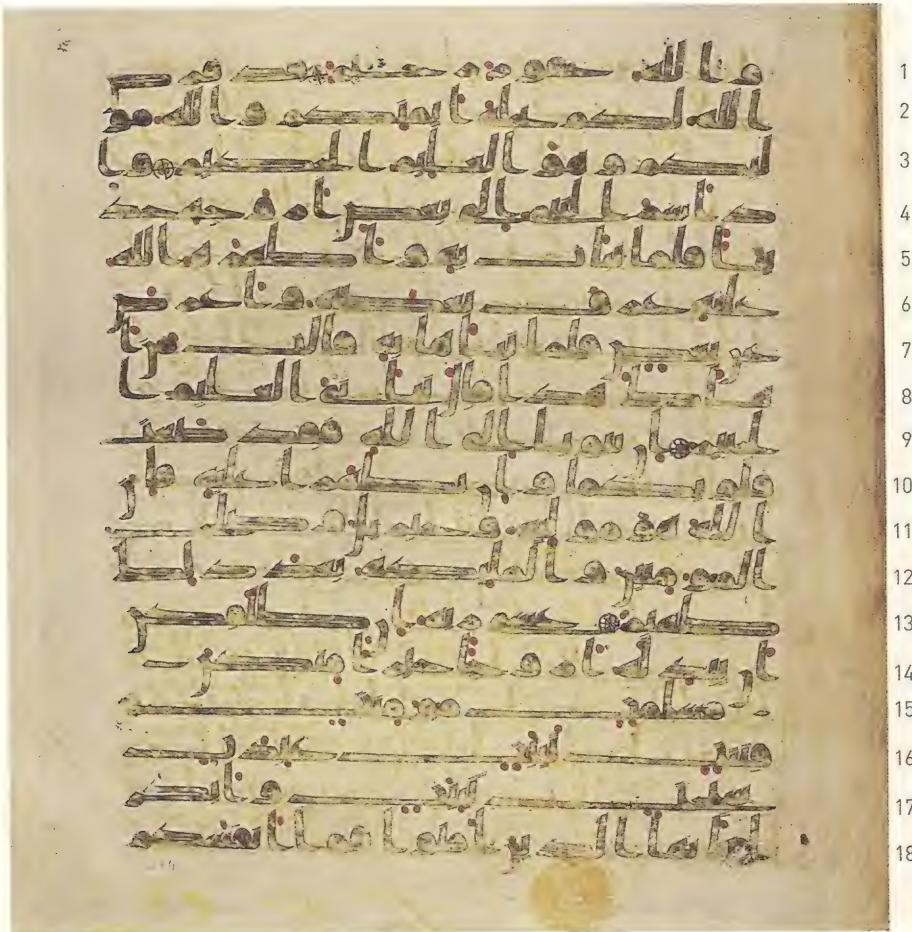 1 والله غفور رحيم قد فر
2 ض الله لكم تحلة ايمنكم والله مو
3 ليكم وهو العليم الحكيم وا
4 ذ اسر النبى الى بعض ازوجه حد
5 يثا فلما نبات به واظهره الله
6 عليه عرف بعضه واعرض
7 عن بعض فلما نباها به قالت من ا
8 نباك هذا قال نبانى العليم ا
9 لخبير ان تتوبا الى الله فقد صغت
10 قلوبكما وان تظهرا عليه فان
11 الله هو موليه وجبريل وصلح
12 المومنين والمليكة بعد ذلك
13 ظهير عسى ربه ان طلقكن
14 ان يبدله ازوجا خيرا منكن
15 مسلمت مومنت
16 قنتت تيبت عبدت
17 سيحت ثيبت وابكر
18 ا يايها الذين امنوا قوا انفسكم